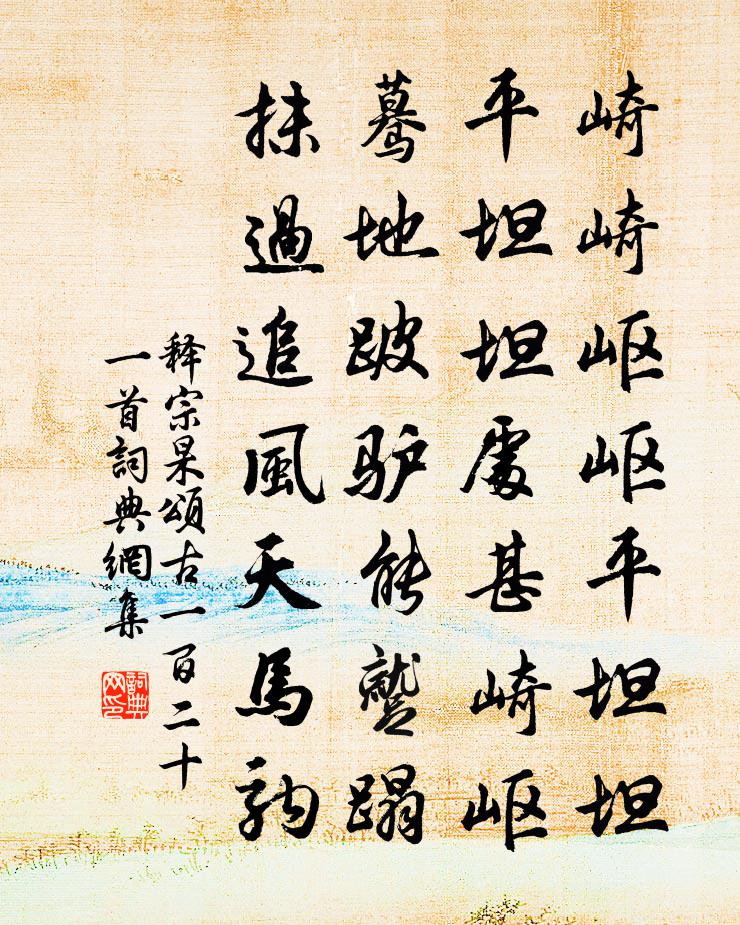 崎崎岖岖平坦坦
平坦坦處甚崎岖
驀地跛驴能蹵蹋
抹過追風天馬駒
释宗杲頌古一百二十
一首詞典網集
詞典网印